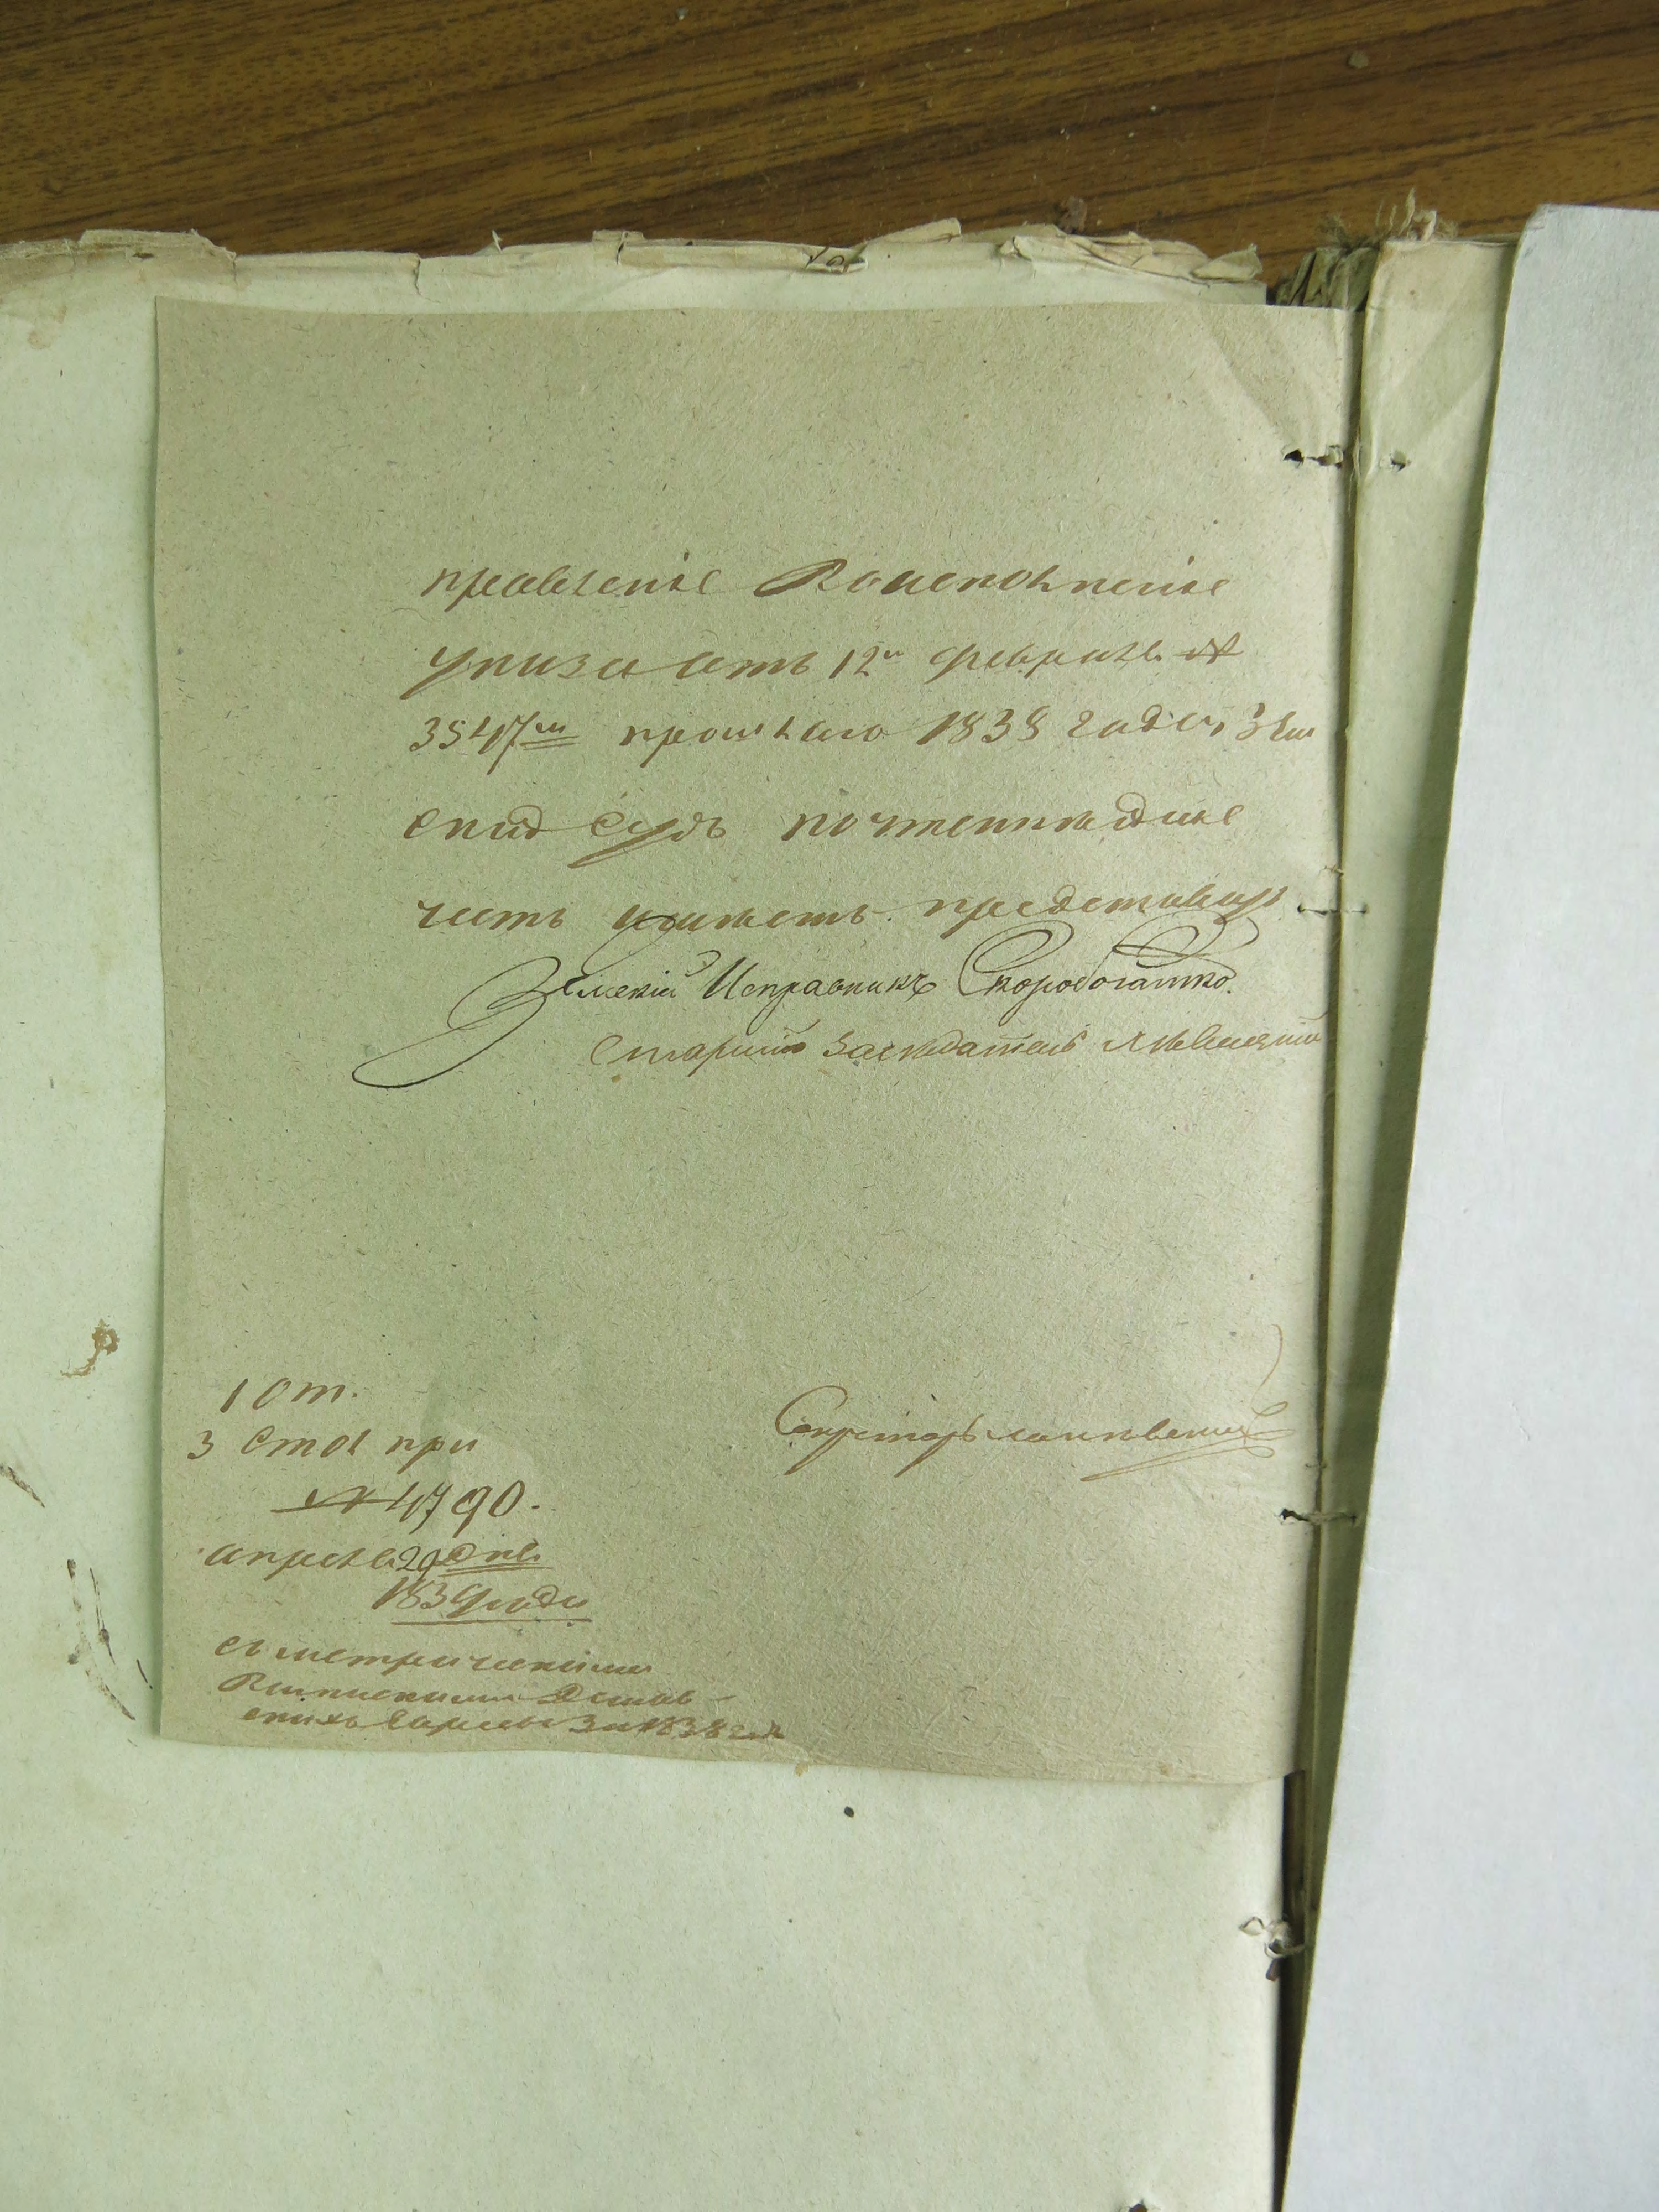 правленіе Воисполненіе
указа отъ 12го февраля №
3547мъ прошлаго 1838 года, Зем
скій Судъ почтеннѣйше
честь имѣетъ представить
Земскій Исправникъ Скоробогатко.
Старшій Заседатель
1 От.
3 Стол при
№ 4790.
апреля 29 дня
1839 года
Секретарь
съ метрическими
Выписками
за 1838 год